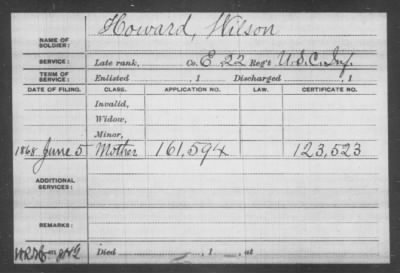 NAME OF SOLDIER: Howard, Wilson
SERVICE: Late rank, Co. E, 22 Reg't U.S.C. Inf.
TERM OF SERVICE: Enlisted , 1 Discharged , 1
DATE OF FILING. CLASS. APPLICATION NO. LAW. CERTIFICATE NO.
Invalid,
Widow,
Minor,
1868 June 5 Mother 161,594 123,523
ADDITIONAL SERVICES:
REMARKS:
Died , 1 , at